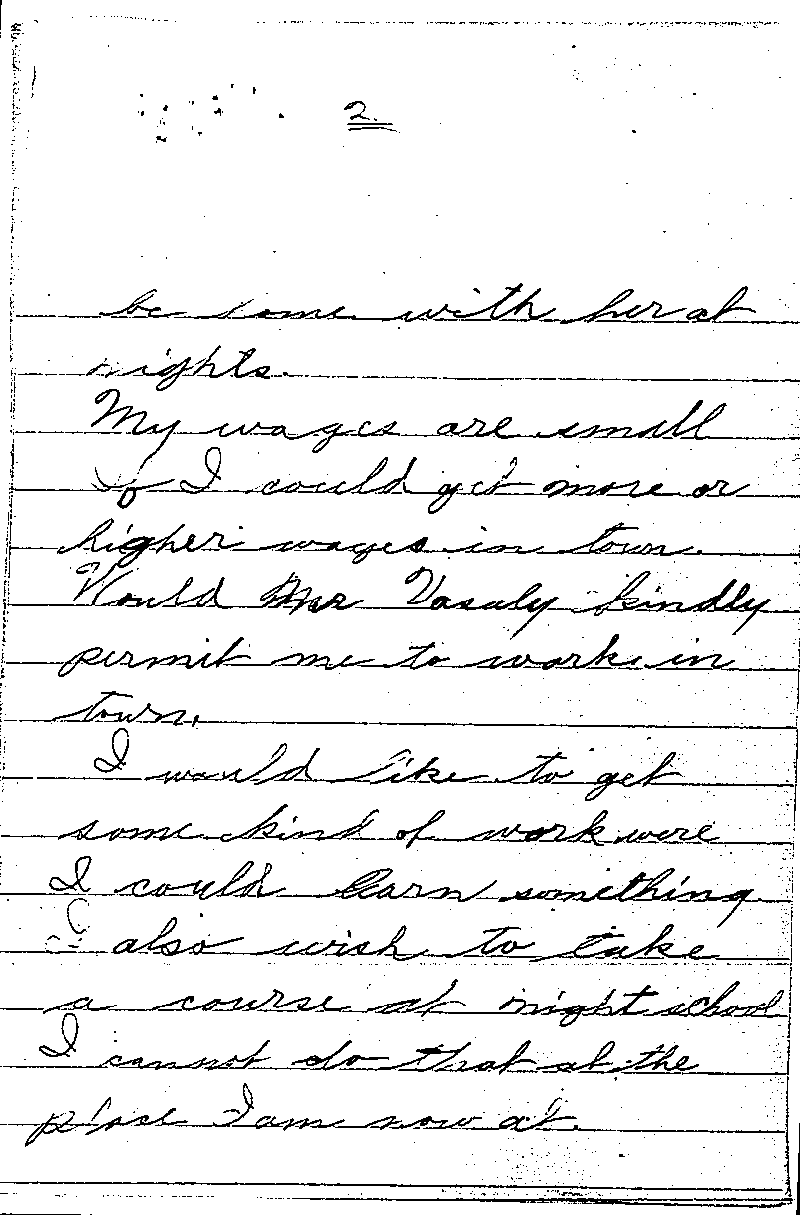 2.
be some with her at
nights.
My wages are small
If I could get more or
higher wages in town.
Would Mr Vasaly kindly
permit me to work in
town.
I would like to get
some kind of work were
I could learn something
I also wish to take
a course at night school
I cannot do that at the
place I am now at.